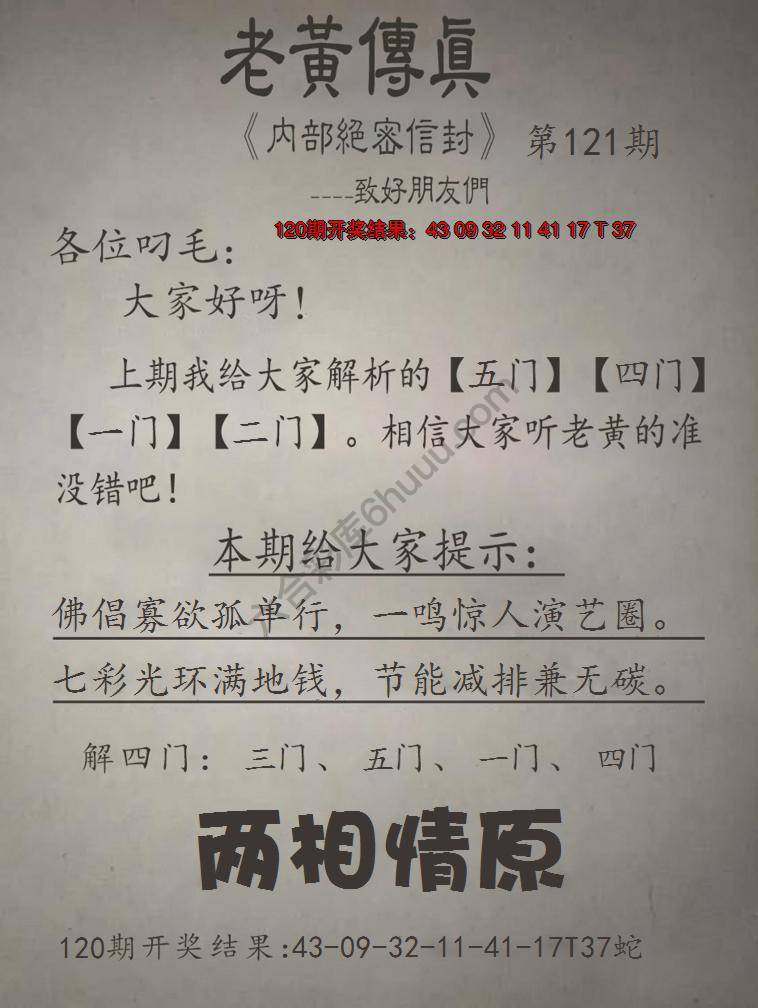 老黃傳眞
《内部絕密信封》 第121期
----致好朋友們
120期开奖结果：43 09 32 11 41 17 T 37
各位叼毛：
大家好呀！
上期我给大家解析的【五门】【四门】
【一门】【二门】。相信大家听老黄的准
没错吧！
六合彩库6huuu.com
本期给大家提示：
佛倡寡欲孤单行，一鸣惊人演艺圈。
七彩光环满地钱，节能减排兼无碳。
解四门：三门、五门、一门、四门
两相情原
120期开奖结果:43-09-32-11-41-17T37蛇